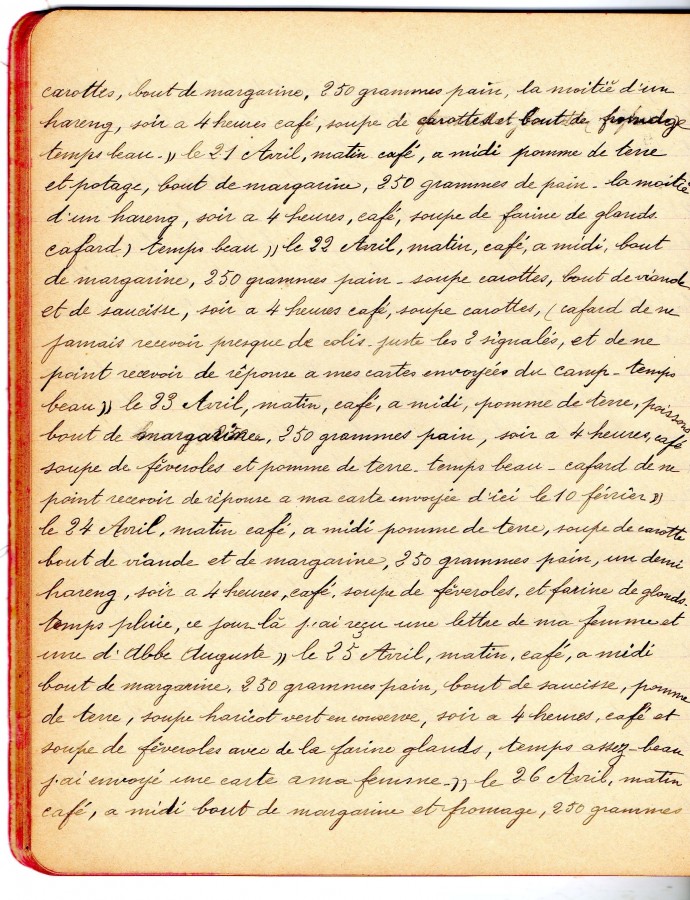 carottes, bout de margarine, 250 grammes pain, la moitié d'un
hareng, soir a 4 heures café, soupe de carottes et bout de
temps beau_)) le 21 Avril, matin café, a midi pomme de terre
et potage, bout de margarine, 250 grammes de pain _ la moitié
d'un hareng, soir a 4 heures, café, soupe de farine de glands
cafard) temps beau)) le 22 Avril, matin, café, a midi, bout
de margarine, 250 grammes pain _ soupe carottes, bout de viande
et de saucisse, soir a 4 heures café, soupe carottes, (cafard de ne
jamais recevoir presque de colis _ juste les 2 signalés, et de ne
point recevoir de réponse a mes cartes envoyées du camp _ temps
beau)) le 23 Avril, matin, café, a midi, pomme de terre, poissons
bout de margarine, 250 grammes pain, soir a 4 heures, café
soupe de féveroles et pomme de terre _ temps beau _ cafard de ne
point recevoir de réponse a ma carte envoyée d'ici le 10 février))
le 24 Avril, matin café, a midi pomme de terre, soupe de carotte
bout de viande et de margarine, 250 grammes pain, un demi
hareng, soir a 4 heures, café, soupe de féveroles, et farine de glands.
temps pluie, ce jour_là j'ai reçu une lettre de ma femme et
une d'Abbe Auguste)) le 25 Avril, matin, café, a midi
bout de margarine, 250 grammes pain, bout de saucisse, pomme
de terre, soupe haricot vert en conserve, soir a 4 heures, café et
soupe de féveroles avec de la farine glands, temps assez_beau
j'ai envoyé une carte a ma femme_)) le 26 Avril, matin
café, a midi bout de margarine et fromage, 250 grammes